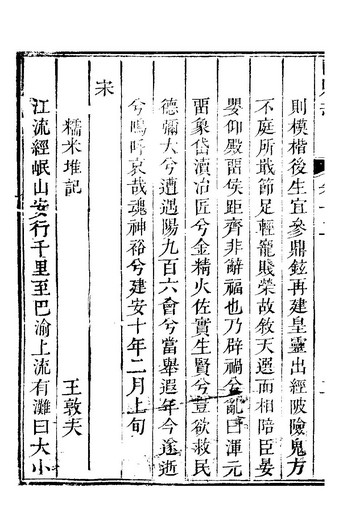 則模楷後生宜參鼎鉉再建皇靈出經陂險鬼方
不庭所戢節足輕寵賤榮故敘天選而相陪臣晏
嬰仰殿留侯距齊非辭福也乃辟禍兮亂曰渾元
留象岱瀆冶匠兮金精火佐實生賢兮豈欲救民
德彌大兮遭遇陽九百六會兮當舉遐年今遂逝
兮嗚呼哀哉魂神裕兮建安十年二月上旬
宋
糯米堆記
王敦夫
江流經岷山安行千里至巴渝上流有灘曰大小